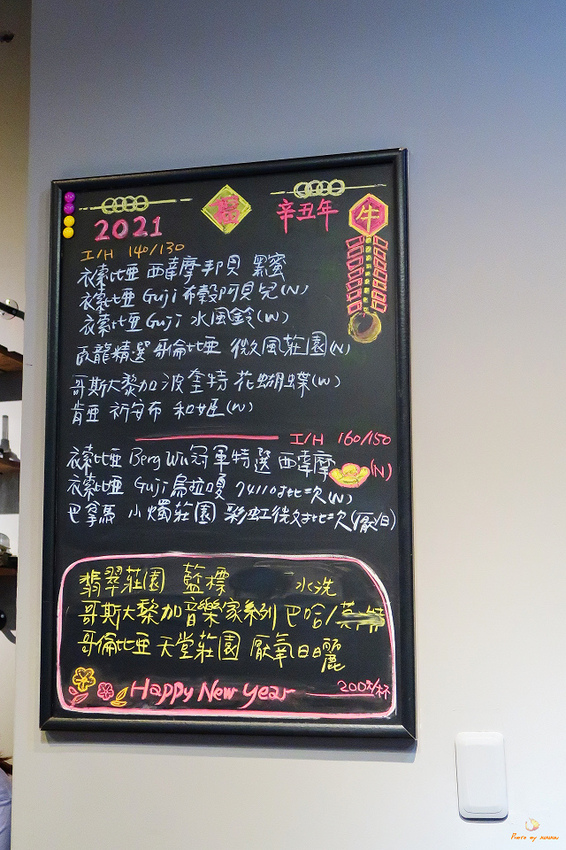 2021 辛丑年 牛
I/H 140/130
衣索比亞 西達摩 邦貝 黑蜜
衣索比亞 Guji 布穀阿貝兒(N)
衣索比亞 Guji 水風鈴(W)
臥龍精選 哥倫比亞 微風莊園(N)
哥斯大黎加 波奎特 花蝴蝶(W)
肯亞 祈安布 和姬(W)
I/H 160/150
衣索比亞 Berg Wu 冠軍特選 西達摩 (N)
衣索比亞 Guji 烏拉嘎 74110批次(N)
巴拿馬 小燭莊園 彩虹微批次(厭/日)
翡翠莊園 藍標 水洗
哥斯大黎加 音樂家系列 巴哈/莫
哥倫比亞 天堂莊園 厭氧日曬
Happy New Year 200元/杯
Photo by